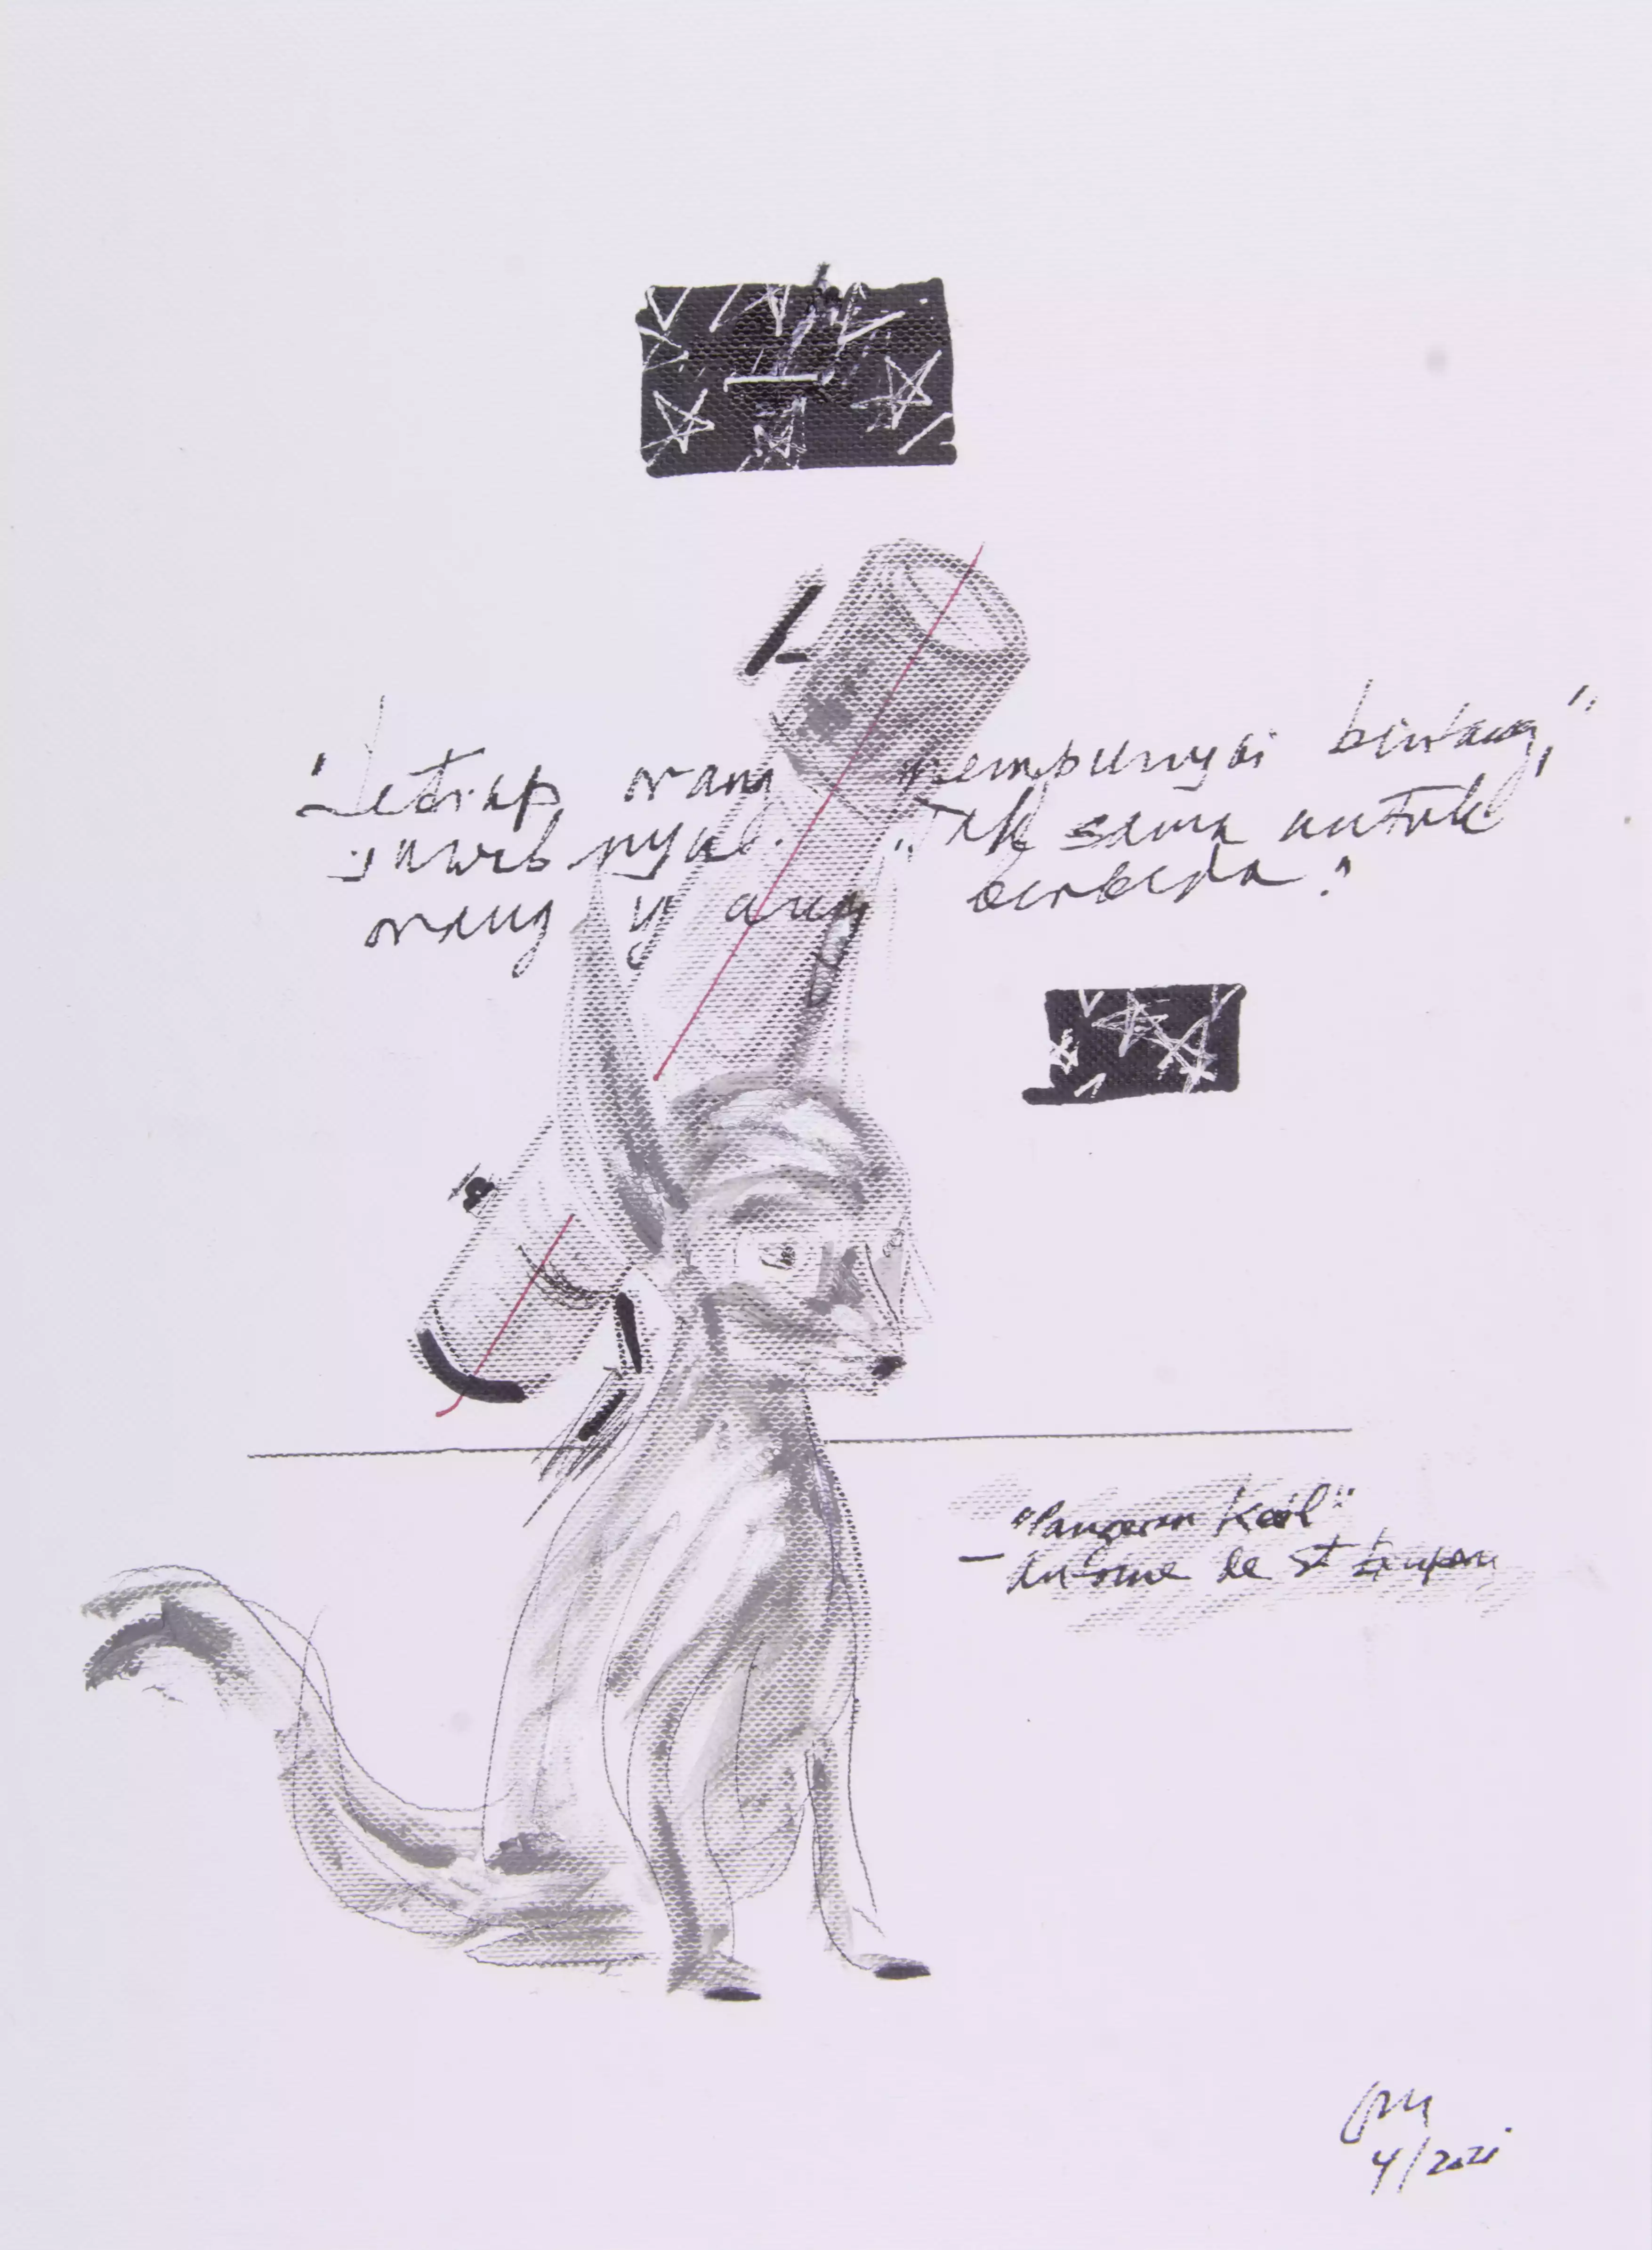 "Setiap orang mempunyai bintang,"
jawabnya. "Tak sama untuk
orang yang berbeda."
"Pangeran Kecil"
- Antoine de St Exupery
4/2021